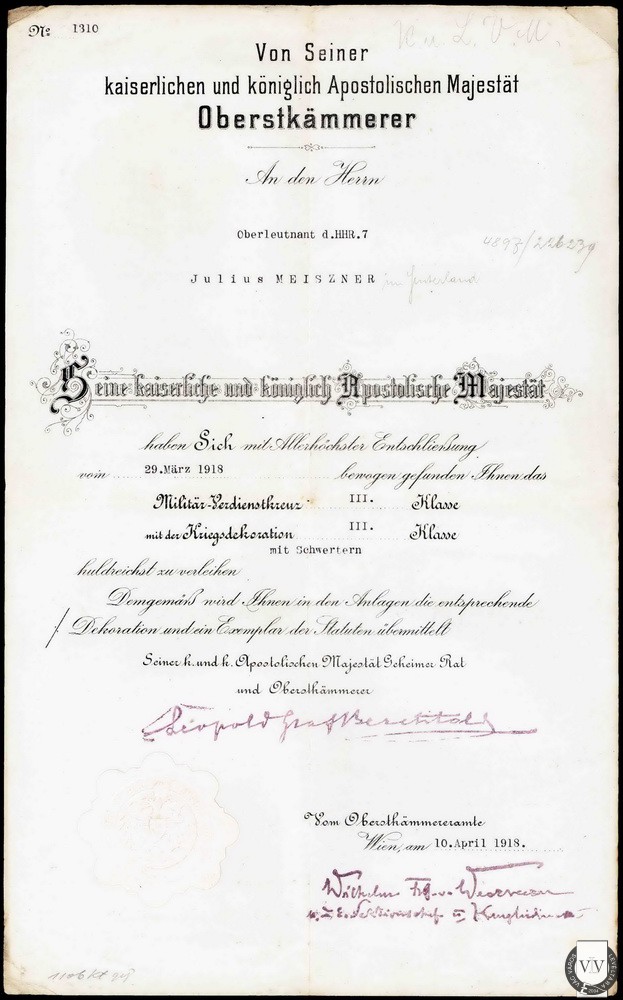 No 1310
K u. L. V. M.
Von Seiner
kaiserlichen und königlich Apostolischen Majestät
Oberstkämmerer
An den Herrn
Oberleutnant d.HHR.7
Julius MEISZNER
Seine kaiserliche und königlich Apostolische Majestät
haben Sich mit Allerhöchster Entschließung
vom 29.März 1918 bewogen gefunden Ihnen das
Militär-Verdienstkreuz III. Klasse
mit der Kriegsdekoration III. Klasse
mit Schwertern
huldreichst zu verleihen
Demgemäß wird Ihnen in den Anlagen die entsprechende
Dekoration und ein Exemplar der Statuten übermittelt
Seiner k. und k. Apostolischen Majestät Geheimer Rat
und Oberstkämmerer
Leopold Graf Berchtold
Vom Oberstkämmereramte
Wien, am 10.April 1918.
Wilhelm
VLV